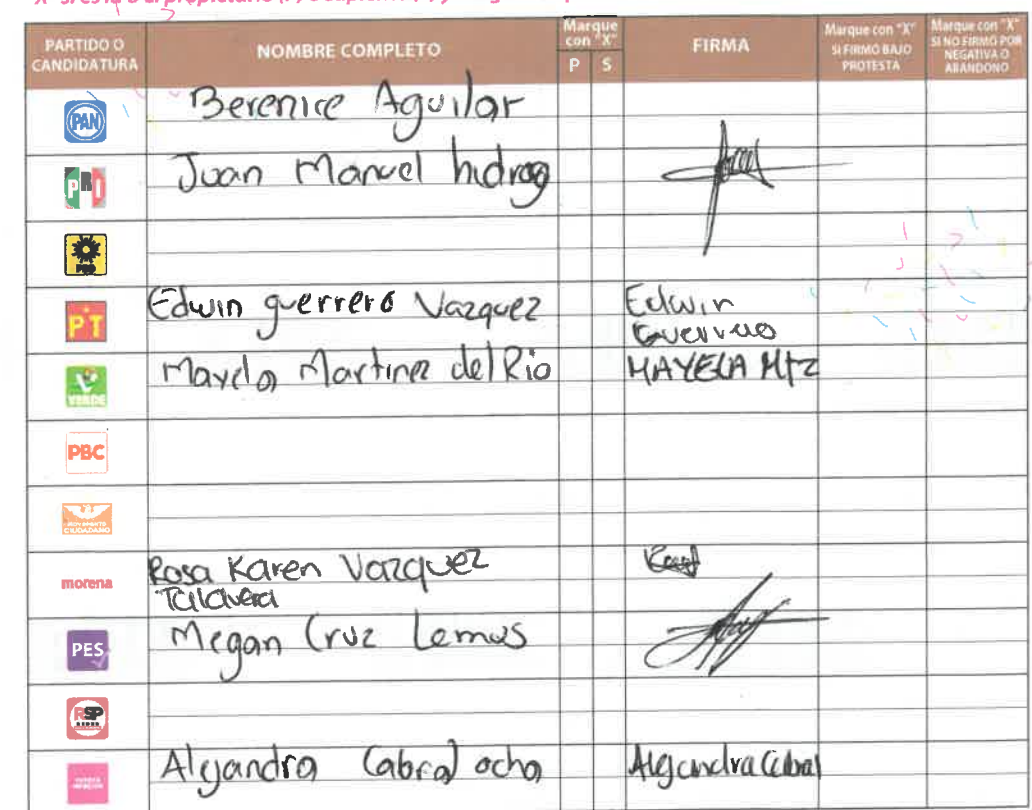 PARTIDO O CANDIDATURA
NOMBRE COMPLETO
Marque con "X"
P S
FIRMA
Marque con "X" SI FIRMO BAJO PROTESTA
Marque con "X" SI NO FIRMO POR NEGATIVA O ABANDONO
PAN Berenice Aguilar
PRI Juan Manuel hidrog
PRD
PT Edwin guerrero Vazquez Edwin
Guerrero
VERDE Mayela Martinez del Rio MAYELA Mtz
PBC
MOVIMIENTO CIUDADANO
morena Rosa Karen Vazquez
Talavera
PES Megan Cruz Lemus
RSP
Alejandra Cabral ocho Alejandra Cabral